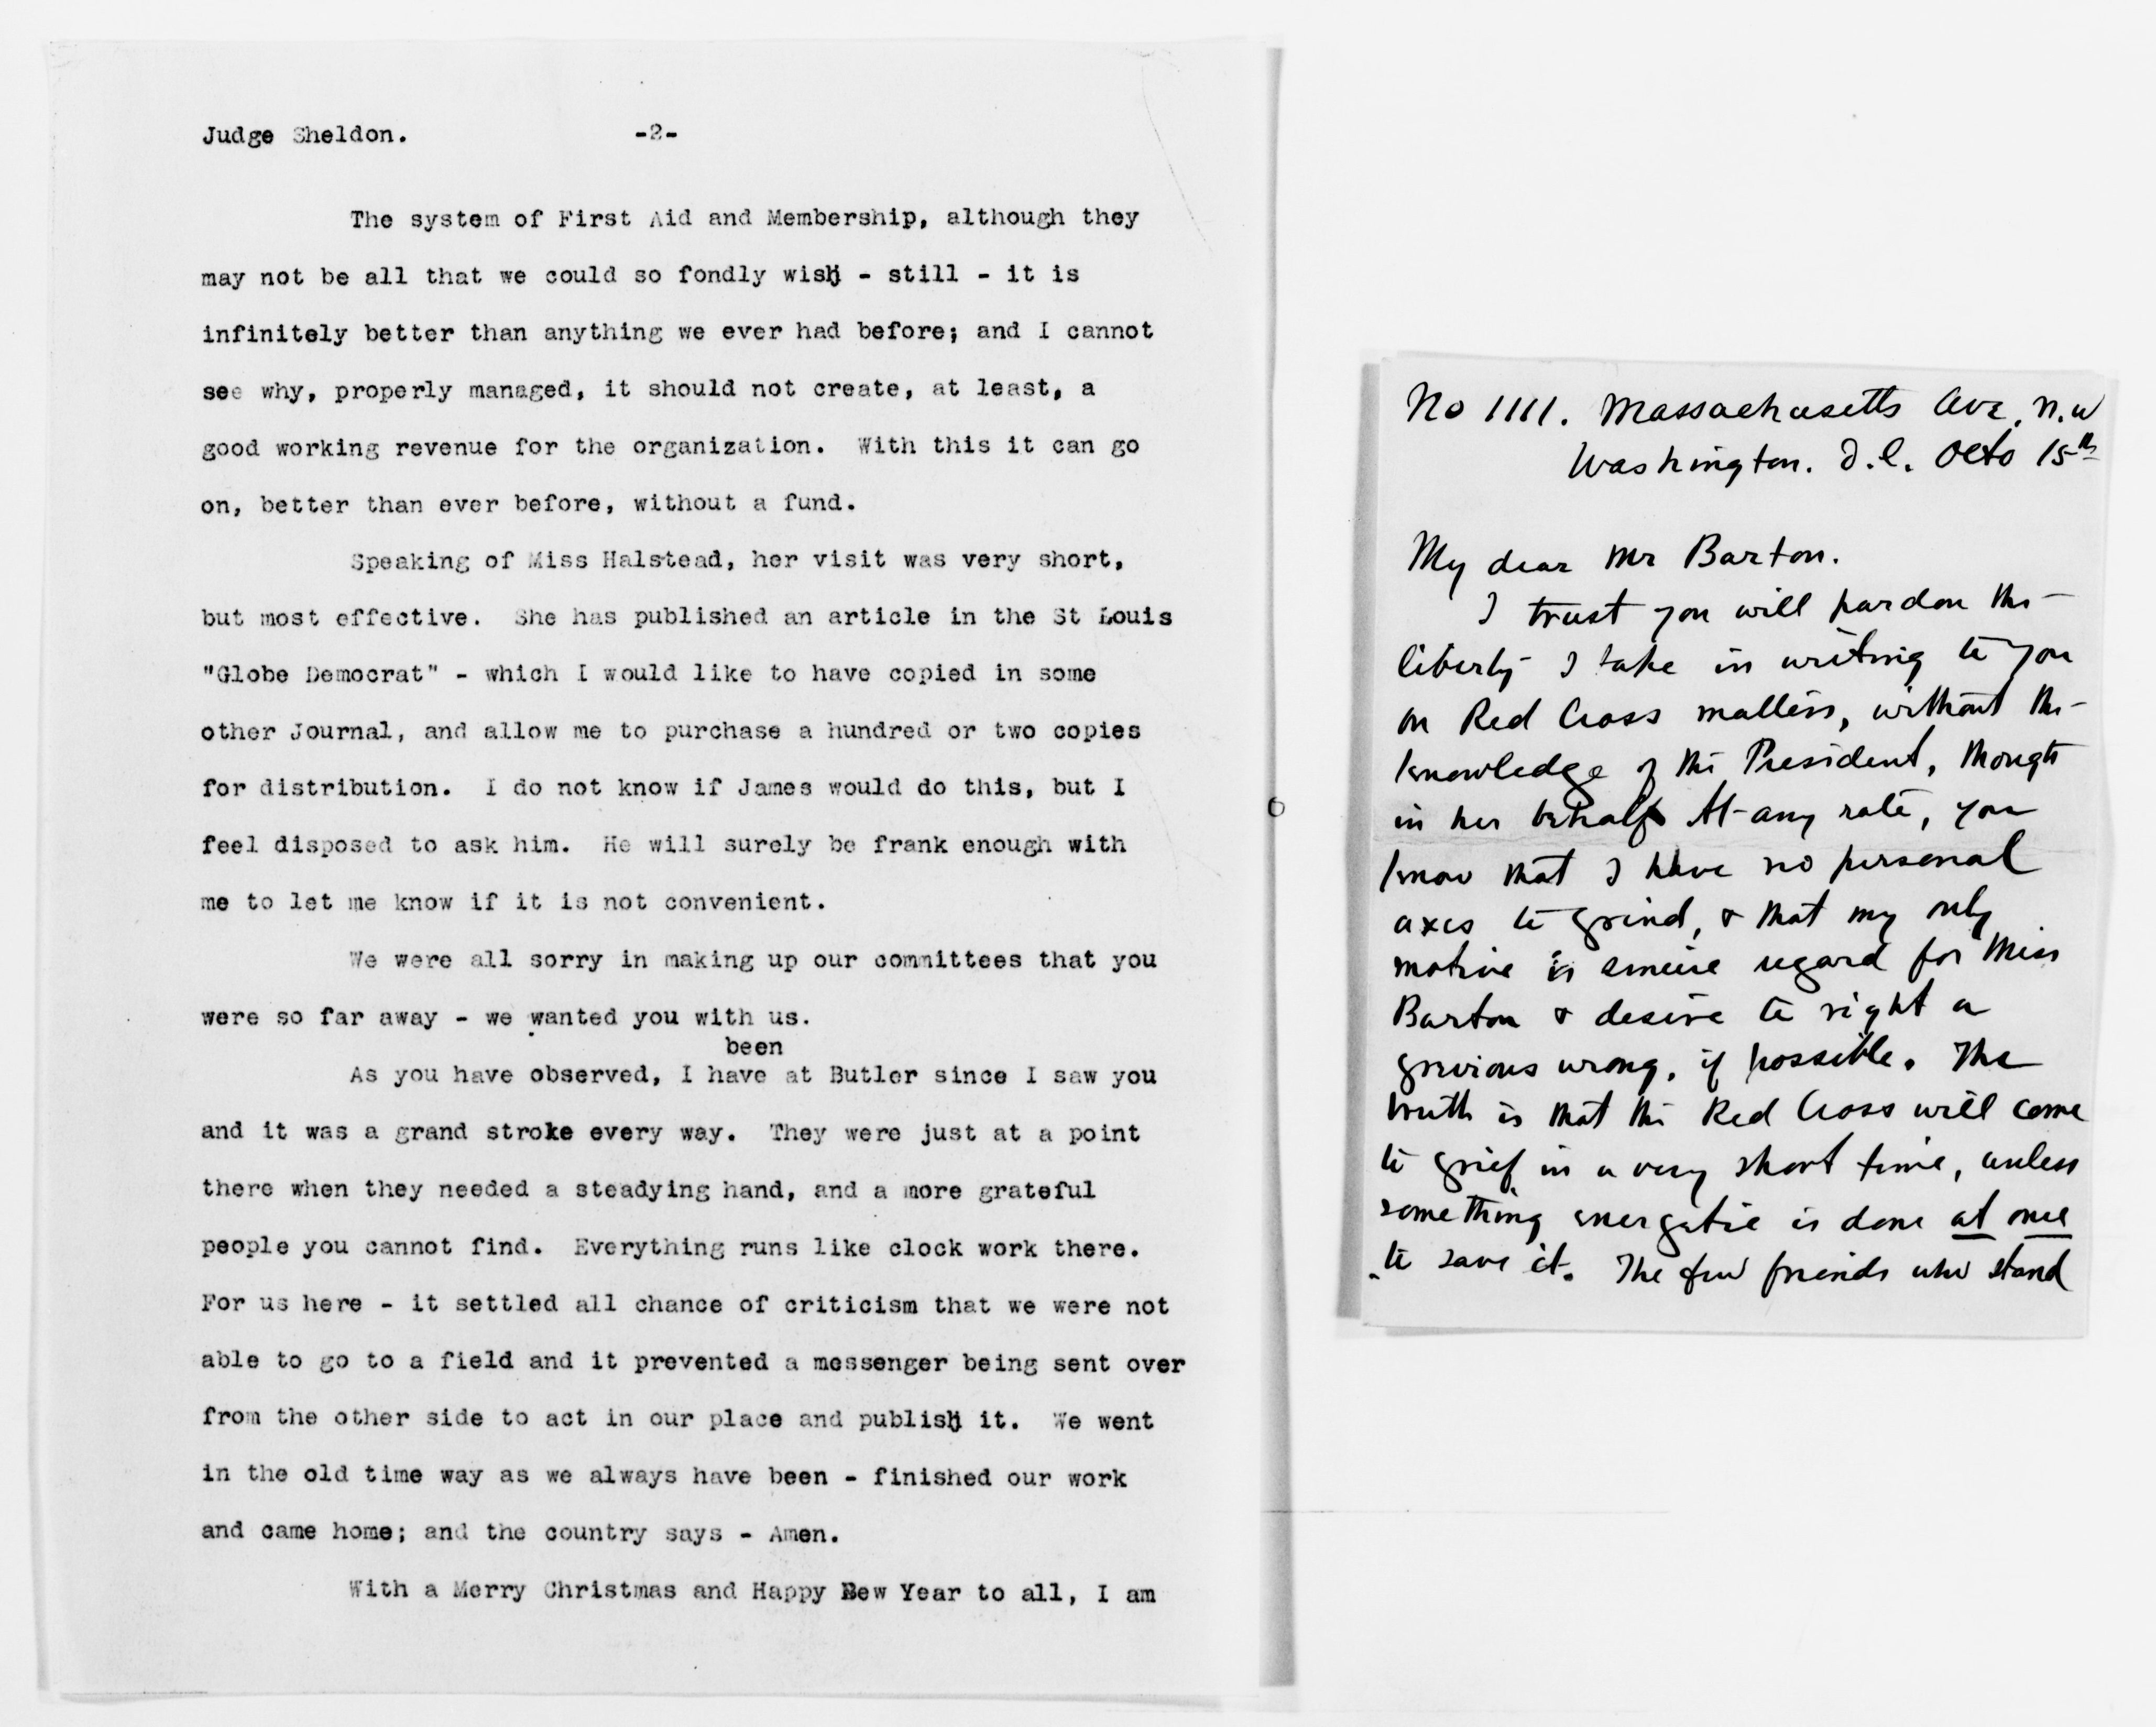 Judge Sheldon. -2-
The system of First Aid and Membership, although they
may not be all that we could so fondly wish - still - it is
infinitely better than anything we ever had before; and I cannot
see why, properly managed, it should not create, at least, a
good working revenue for the organization. With this it can go
on, better than ever before, without a fund.
Speaking of Miss Halstead, her visit was very short,
but most effective. She has published an article in the St Louis
"Globe Democrat" - which I would like to have copied in some
other Journal, and allow me to purchase a hundred or two copies
for distribution. I do not know if James would do this, but I
feel disposed to ask him. He will surely be frank enough with
me to let me know if it is not convenient.
We were all sorry in making up our committees that you
were so far away - we wanted you with us.
been
As you have observed, I have at Butler since I saw you
and it was a grand stroke every way. They were just at a point
there when they needed a steadying hand, and a more grateful
people you cannot find. Everything runs like clock work there.
For us here - it settled all chance of criticism that we were not
able to go to a field and it prevented a messenger being sent over
from the other side to act in our place and publish it. We went
in the old time way as we always have been - finished our work
and came home; and the country says - Amen.
With a Merry Christmas and Happy New Year to all, I am
No 1111. Massachusetts Ave. N.W
Washington. D.C. Octo 15th
My dear Mr Barton.
I trust you will pardon the
liberty I take in writing to you
on Red Cross matters, without the
knowledge of the President, though
in her behalf. At any rate, you
know that I have no personal
axes to grind, & that my only
motive is sincere regard for Miss
Barton & desire to right a
grevious wrong, if possible. The
truth is that the Red Cross will come
to grief in a very short time, unless
something energetic is done at once
to save it. The few friends who stand